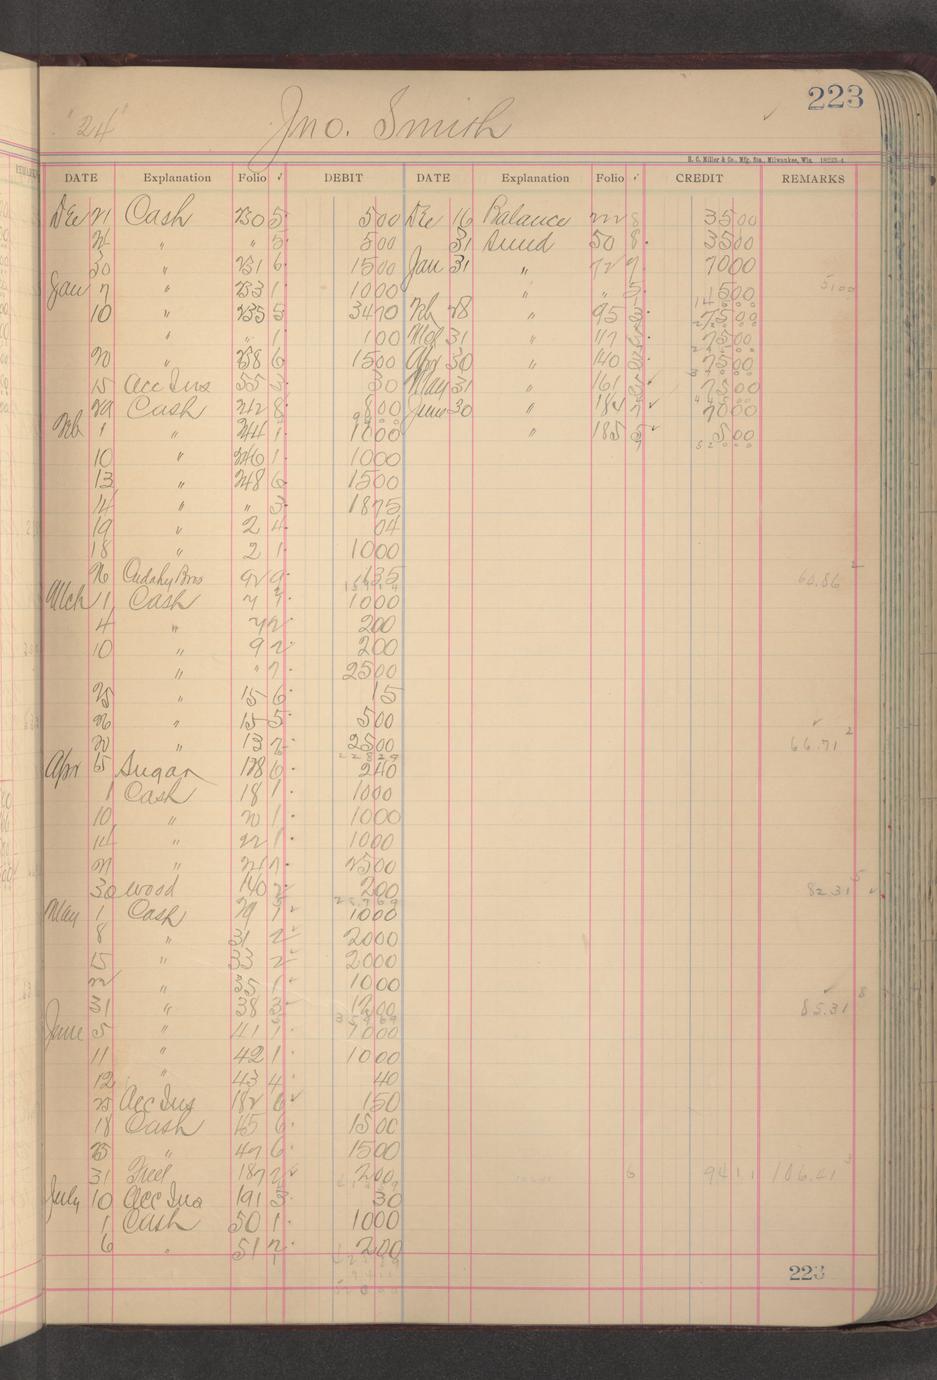 223
"24" Jno. Smith
H. C. Miller & Co., Mfg. Sta., Milwaukee, Wis.
DATE Explanation Folio √ DEBIT DATE Explanation Folio √ CREDIT REMARKS
Dec 21 Cash 230 5 500 Dec 16 Balance 222 8 3500
" " 5 500 31 Sund 50 8 3500
30 " 231 6 1500 Jan 31 " 72 7 7000
Jan 7 " 233 1 1000 " " 5 1500
10 " 235 5 3470 Feb 28 " 95 7500
" " 1 100 Mch 31 " 117 7500
20 " 238 6 1500 Apr 30 " 140 7500
15 Acc Ins 55 30 May 31 " 161 7500
29 Cash 242 8 800 June 30 " 184 7 7000
Feb 1 " 244 1 1000 " 185 500
10 " 246 1 1000
13 " 248 6 1500
14 " " 3 1875
19 " 2 4 04
18 " 2 1 1000
26 Cudahy Bros 92 9 135 60.86
Mch 1 Cash 7 1000
4 " 7 2 200
10 " 9 2 200
" " 7 2500
25 " 15 6 15
26 " 15 5 500
20 " 13 2 2500 66.71
Apr 5 Sugar 128 6 240
1 Cash 18 1 1000
10 " 20 1 1000
14 " 22 1 1000
21 " 24 7 2500
30 Wood 140 2 200 82.31
May 1 Cash 29 1 1000
8 " 31 2 2000
15 " 33 2 2000
22 " 35 1 1000
31 " 38 3 1200 85.31
June 5 " 41 1 1000
11 " 42 1 1000
12 " 43 4 40
25 Acc Ins 182 6 150
18 Cash 45 6 1500
25 " 47 6 1500
31 Fuel 187 2 200 6 9411 106.41
July 10 Acc Ins 191 3 30
1 Cash 50 1 1000
6 " 51 2 200
223